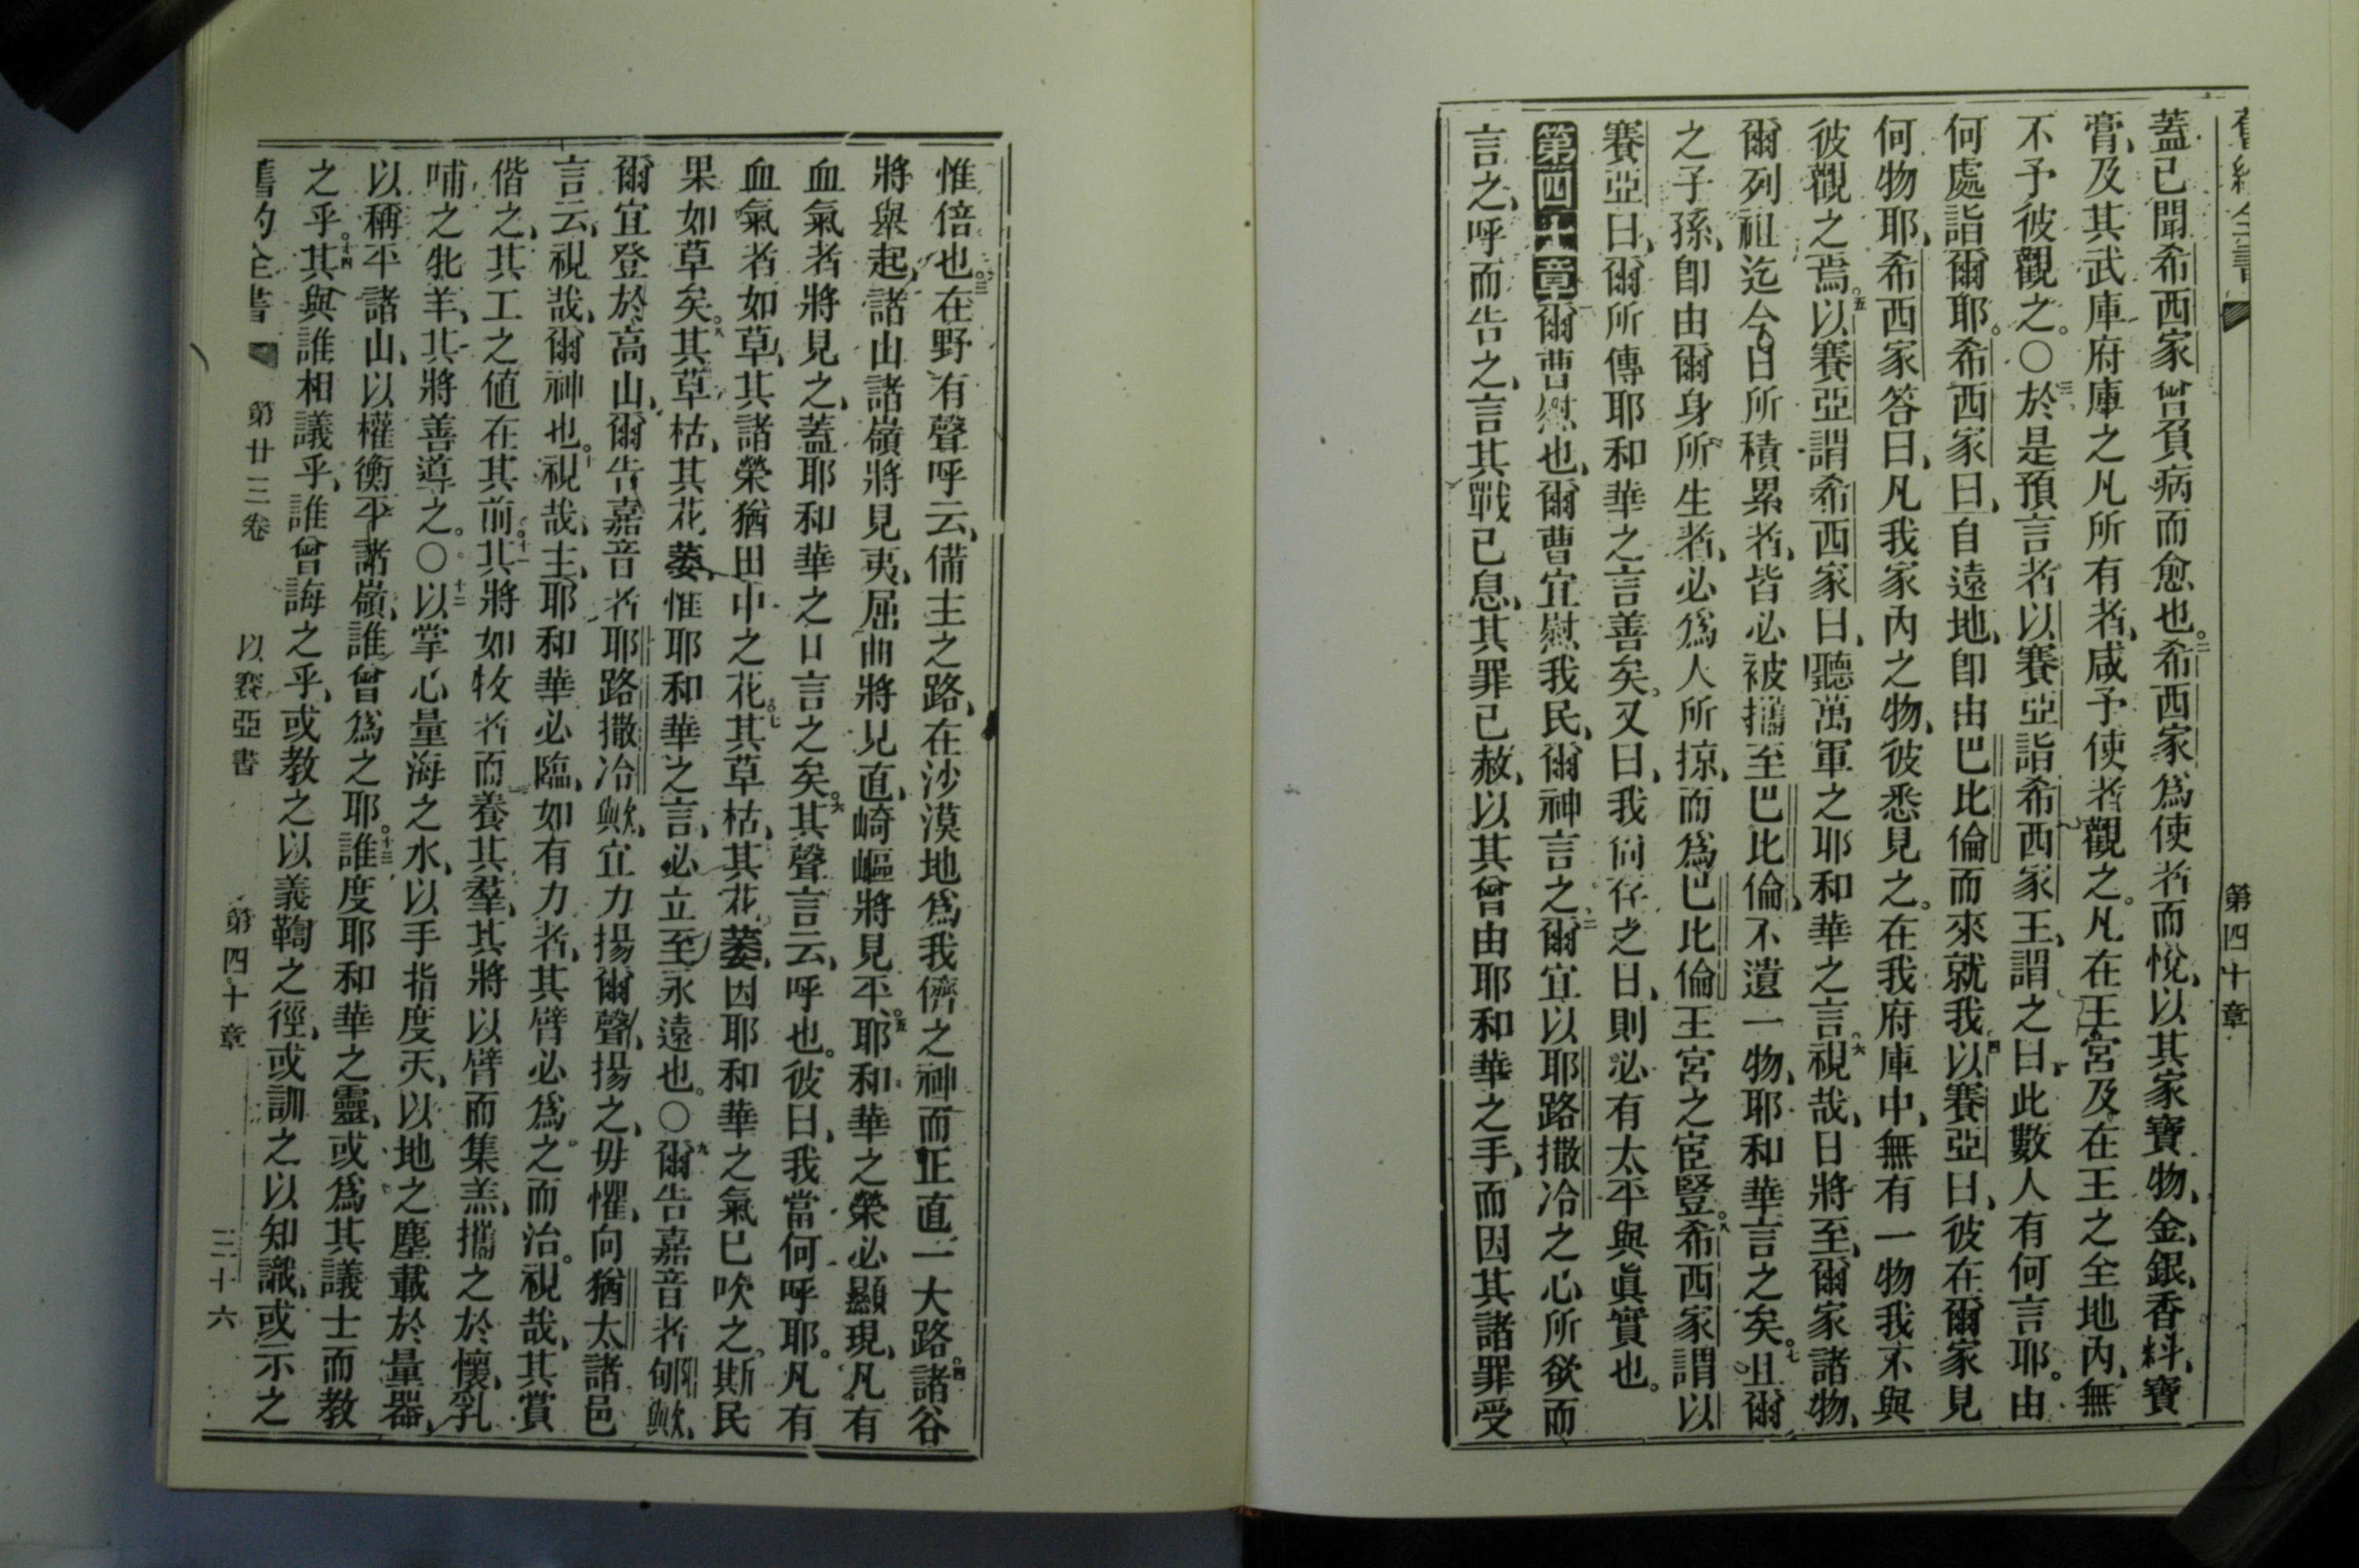 第四十章
蓋已聞希西家曾負病而愈也。二希西家爲使者而悅、以其家寶物、金、銀、香料、寶
膏、及其武庫府庫之凡所有者、咸予使者觀之。凡在王宮及在王之全地內、無
不予彼觀之。〇三於是預言者以賽亞詣希西家王、謂之曰、此數人有何言耶。由
何處詣爾耶。希西家曰、自遠地、卽由巴比倫而來就我。四以賽亞曰、彼在爾家見
何物耶、希西家答曰、凡我家內之物、彼悉見之。在我府庫中、無有一物我不與
彼觀之焉。五以賽亞謂希西家曰、聽萬軍之耶和華之言。六視哉、日將至、爾家諸物、
爾列祖迄今日所積累者、皆必被攜至巴比倫、不遺一物、耶和華言之矣。七且爾
之子孫、卽由爾身所生者、必爲人所掠、而爲巴比倫王宮之宦豎。八希西家謂以
賽亞曰、爾所傳耶和華之言善矣。又曰、我尚存之日、則必有太平與眞實也。
第四十章一爾曹慰也、爾曹宜慰我民、爾神言之、二爾宜以耶路撒冷之心所欲而
言之、呼而告之、言其戰已息、其罪已赦、以其曾由耶和華之手、而因其諸罪受
惟倍也。三在野有聲呼云、備主之路、在沙漠地爲我儕之神而正直一大路。四諸谷
將舉起、諸山諸嶺將見夷、屈曲將見直、崎嶇將見平。五耶和華之榮必顯現、凡有
血氣者將見之、蓋耶和華之口言之矣。六其聲言云、呼也。彼曰、我當何呼耶。凡有
血氣者如草、其諸榮猶田中之花。七其草枯、其花萎、因耶和華之氣已吹之。斯民
果如草矣。八其草枯、其花萎、惟耶和華之言、必立至永遠也。〇九爾告嘉音者郇歟、
爾宜登於高山、爾告嘉音者耶路撒冷歟、宜力揚爾聲、揚之、毋懼、向猶太諸邑
言云、視哉、爾神也。十視哉、主耶和華必臨、如有力者、其臂必爲之而治。視哉、其賞
偕之、其工之値在其前。十一其將如牧者而養其羣、其將以臂而集羔、攜之於懷、乳
哺之牝羊、其將善導之。〇十二以掌心量海之水、以手指度天、以地之塵載於量器、
以稱平諸山、以權衡平諸嶺、誰曾爲之耶。十三誰度耶和華之靈、或爲其議士而教
之乎。十四其與誰相議乎、誰曾誨之乎、或教之以義鞫之徑、或訓之以知識、或示之
舊約全書 第廿三卷 以賽亞書 第四十章 三十六